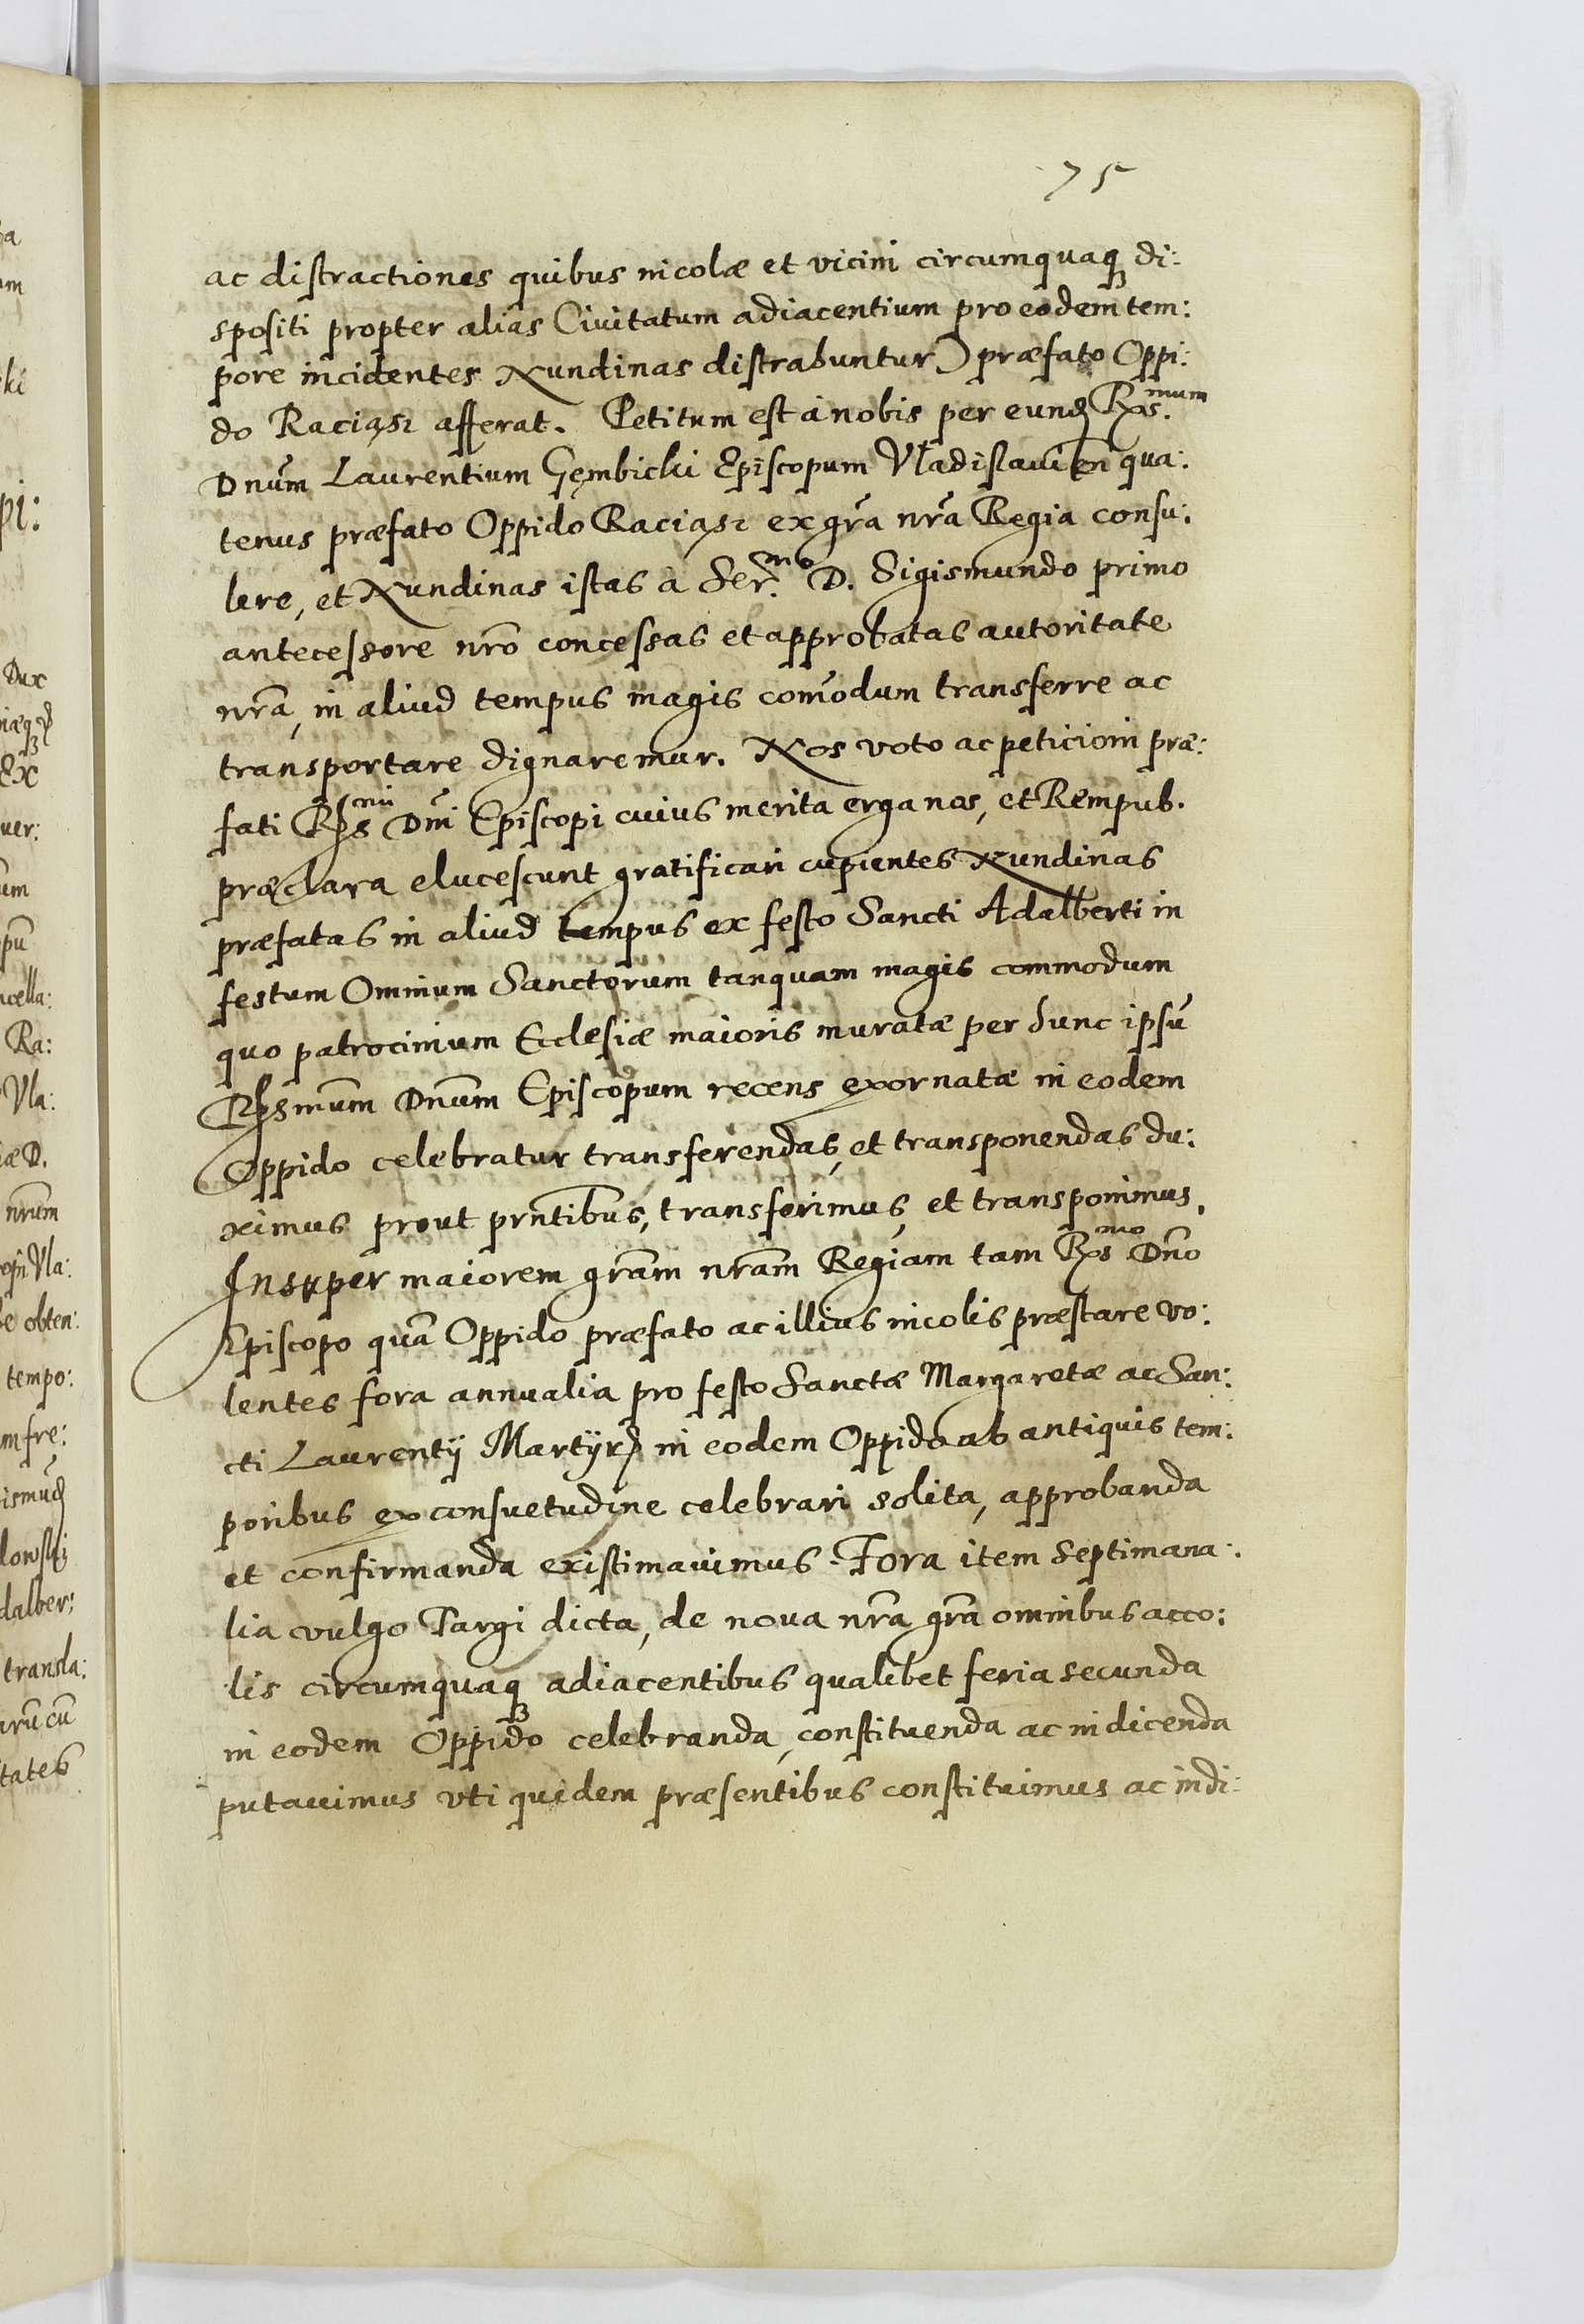 75
ac distractiones quibus incolæ et vicini circumquaq di:
spositi propter alias Ciuitatum adiacentium pro eodem tem:
pore incidentes Nundinas distrahuntur) præfato Oppi:
do Raciąsz afferat. Petitum est à nobis per eund Rs.mum
Dnum Laurentium Gęmbicki Episcopum Vladislauien qua:
tenus præfato Oppido Raciąsz ex gra nra Regia consu:
lere, et Nundinas istas à Ser.mo D. Sigismundo primo
antecessore nro concessas et approbatas autoritate
nra, in aliud tempus magis comodum transferre ac
transportare dignaremur. Nos voto ac peticioni præ:
fati Rsmi Dni Episcopi cuius merita erga nos, et Rempub.
præclara elucescunt gratificari cupientes Nundinas
præfatas in aliud tempus ex festo Sancti Adalberti in
festum Omnium Sanctorum tanquam magis commodum
quo patrocinium Ecclesiæ maioris muratæ per hunc ipsu
Rsmum Dnum Episcopum recens exornatæ in eodem
Oppido celebratur transferendas, et transponendas du:
ximus prout prntibus, transferimus, et transponimus.
Insuper maiorem gram nram Regiam tam Rsmo Dno
Episcopo qua Oppido præfato ac illius incolis præstare vo:
lentes fora annualia pro festo Sanctæ Margaretæ ac San:
cti Laurentij Martyr in eodem Oppido ab antiquis tem:
poribus ex consuetudine celebrari solita, approbanda
et confirmanda existimauimus. Fora item Septimana:
lia vulgo Targi dicta, de noua nra gra omnibus acco:
lis circumquaq adiacentibus qualibet feria secunda
in eodem Oppido celebranda, constituenda ac indicenda
putauimus vti quidem præsentibus constituimus ac indi: